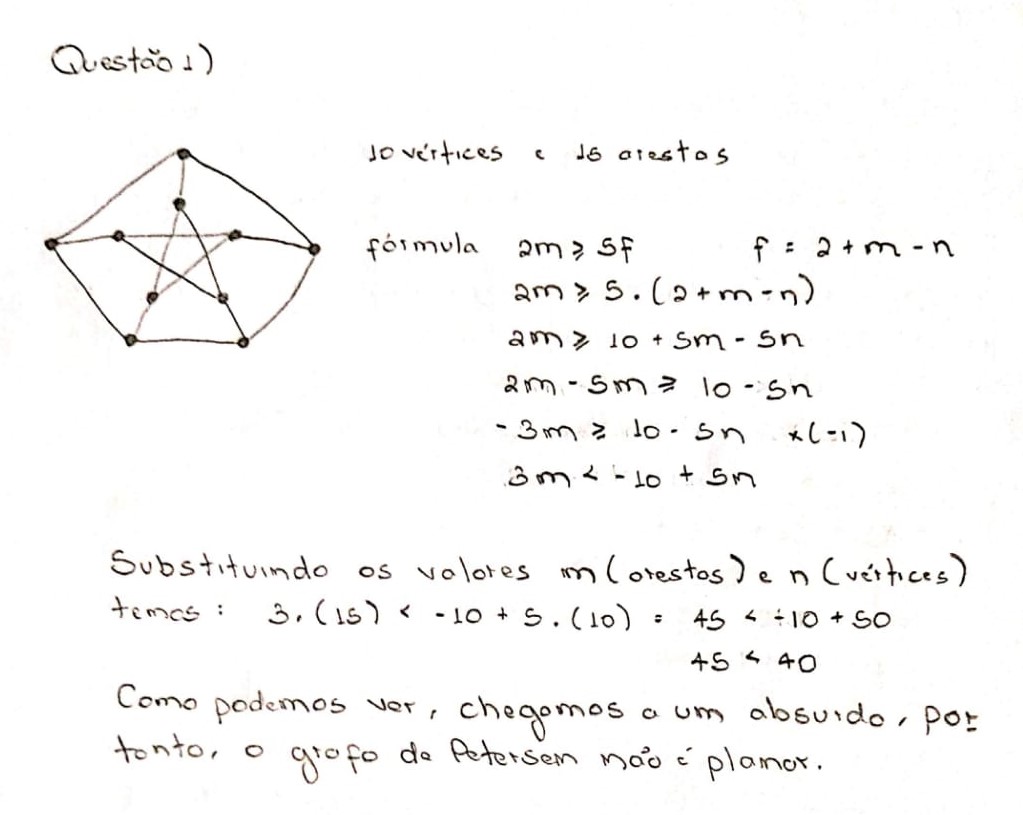 Questão 1)
10 vértices e 15 arestas
fórmula 2m ≥ 5f f = 2 + m - n
2m ≥ 5 . (2 + m - n)
2m ≥ 10 + 5m - 5n
2m - 5m ≥ 10 - 5n
- 3m ≥ 10 - 5n x(-1)
3m < - 10 + 5n
Substituindo os valores m (arestas) e n (vértices)
temos : 3 . (15) < - 10 + 5 . (10) = 45 < - 10 + 50
45 < 40
Como podemos ver, chegamos a um absurdo, por
tanto, o grafo de Petersem não é planar.